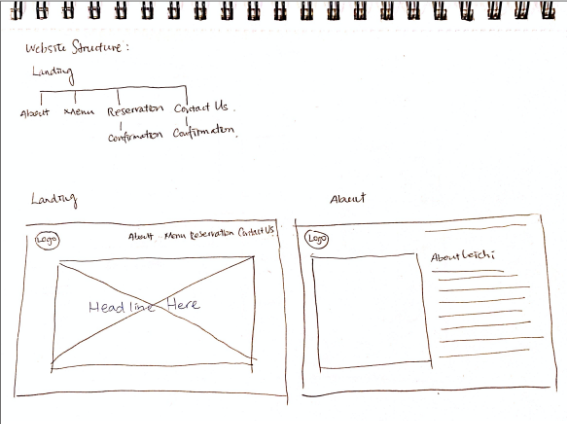 Website Structure:
Landing
About Menu Reservation Contact Us
Confirmation Confirmation
Landing
About
Logo About Menu Reservation Contact Us
Headline Here
Logo
About Leichi